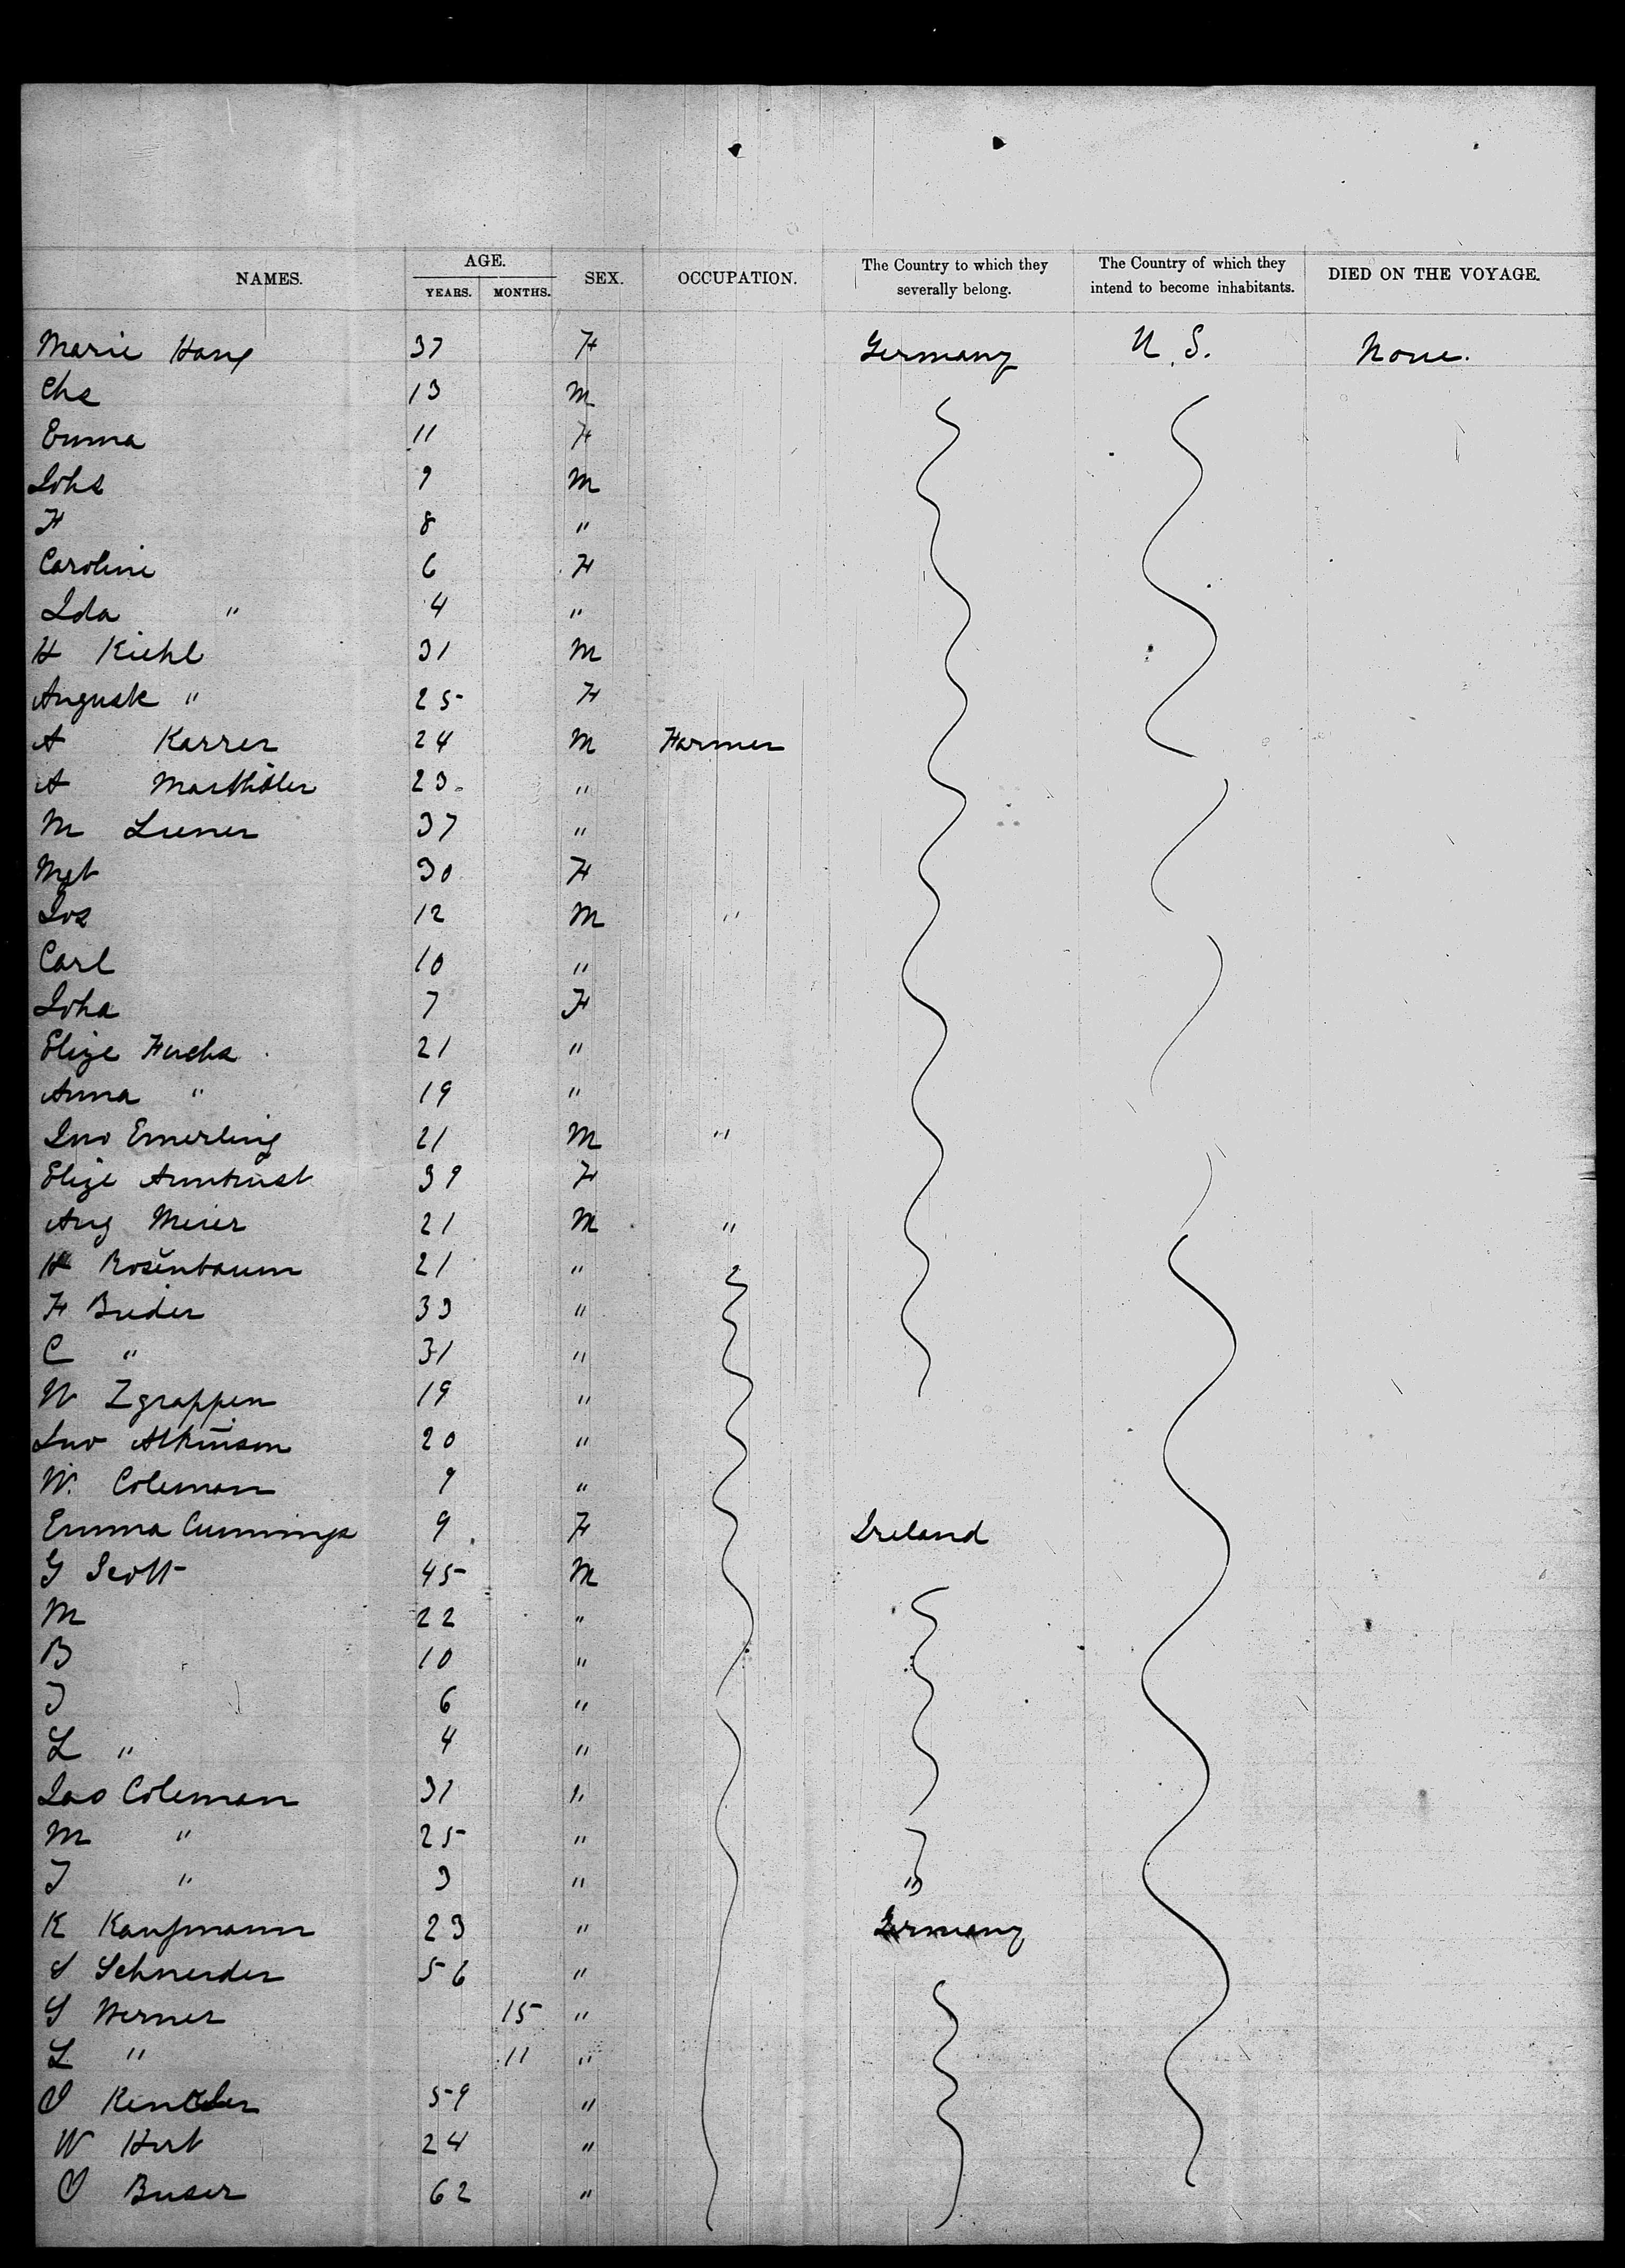 AGE.
NAMES. YEARS. MONTHS. SEX. OCCUPATION. The Country to which they severally belong. The Country of which they intend to become inhabitants. DIED ON THE VOYAGE.
Marie Haug 37 F Germany U.S. None.
Chs 13 M
Emma 11 F
Johs 9 M
F 8 "
Caroline 6 F
Ida " 4 "
H Kiehl 31 M
Auguste " 25 F
A Karrer 24 M Farmer
A Marthäler 23 "
M Liener 37 "
Mgt 30 F
Jos 12 M "
Carl 10 "
Joha 7 F
Elize Fuchs 21 "
Anna " 19 "
Jno Emerling 21 M "
Elize 39 F
Aug Meier 21 M "
H Rosenbaum 21 "
F Brieder 33 "
C " 31 "
W Zgrappen 19 "
Jno Atkinson 20 "
W. Coleman 9 "
Emma Cummings 9 F Ireland
G Scott 45 M
M 22 "
B 10 "
J 6 "
L " 4 "
Jas Coleman 31 "
M " 25 "
J " 3 " "
K Kaufmann 23 " Germany
S Schneider 56 "
S Werner 15 "
L " 11 "
J 59 "
W Hirt 24 "
J Buser 62 "